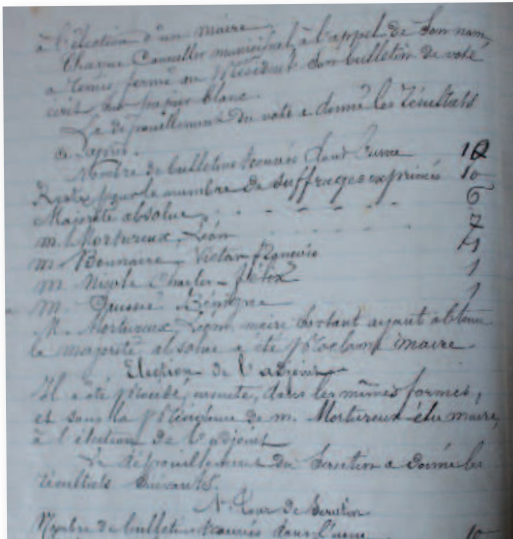 à l'élection d'un maire.
Chaque Conseiller municipal, à l'appel de son nom,
a remis fermé au Président son bulletin de vote
écrit sur papier blanc.
Le dépouillement du vote a donné les résultats
ci-après.
Nombre de bulletins trouvés dans l'urne 10
Reste pour le nombre de suffrages exprimés 10
Majorité absolue 6
M. Mortureux Léon
M. Bonnaire Victor
M. Nicole Charles Félix 1
M. 1
M. Mortureux Léon, maire sortant ayant obtenu
la majorité absolue a été proclamé maire
Election de l'adjoint
Il a été procédé, ensuite, dans les mêmes formes,
et sous la présidence de M. Mortureux élu maire,
à l'élection de l'adjoint
Le dépouillement du scrutin a donné les
résultats suivants.
Tour de Scrutin
Nombre de bulletins trouvés dans l'urne 10